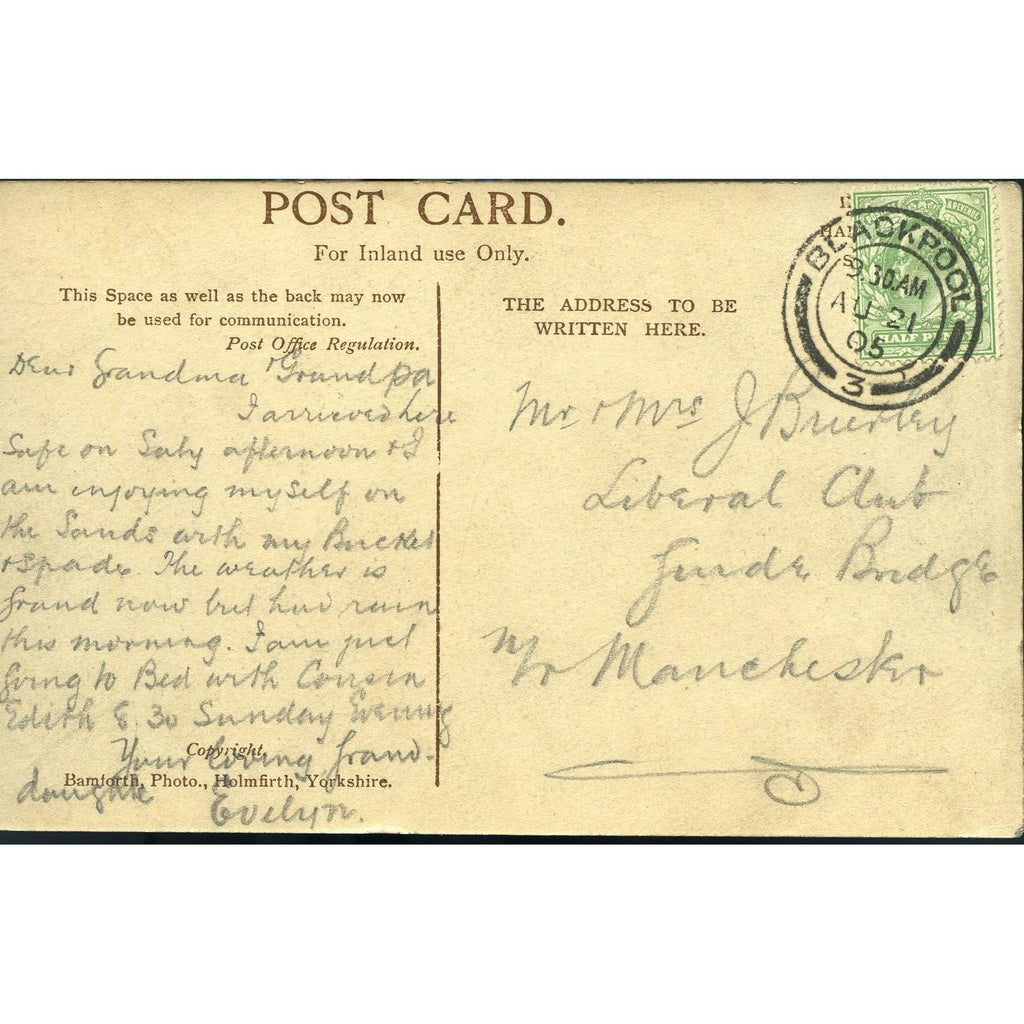 POST CARD.
For Inland use Only.
This Space as well as the back may now
be used for communication.
Post Office Regulation.
THE ADDRESS TO BE
WRITTEN HERE.
BLACKPOOL
9.30 AM
AU 21
05
3
& REVENUE
HALF
Dear Grandma & Grandpa
I arrieved here
Safe on Saty afternoon & I
am enjoying myself on
the Sands with my Bucket
& Spade. The weather is
Grand now but had rain
this morning. I am just
going to Bed with Cousin
Edith 8.30 Sunday Evening
Your loving Grand-
daughte
Evelyn.
Mr & Mrs J Brierley
Liberal Club
Guide Bridge
N/r Manchester
Copyright,
Bamforth, Photo., Holmfirth, Yorkshire.